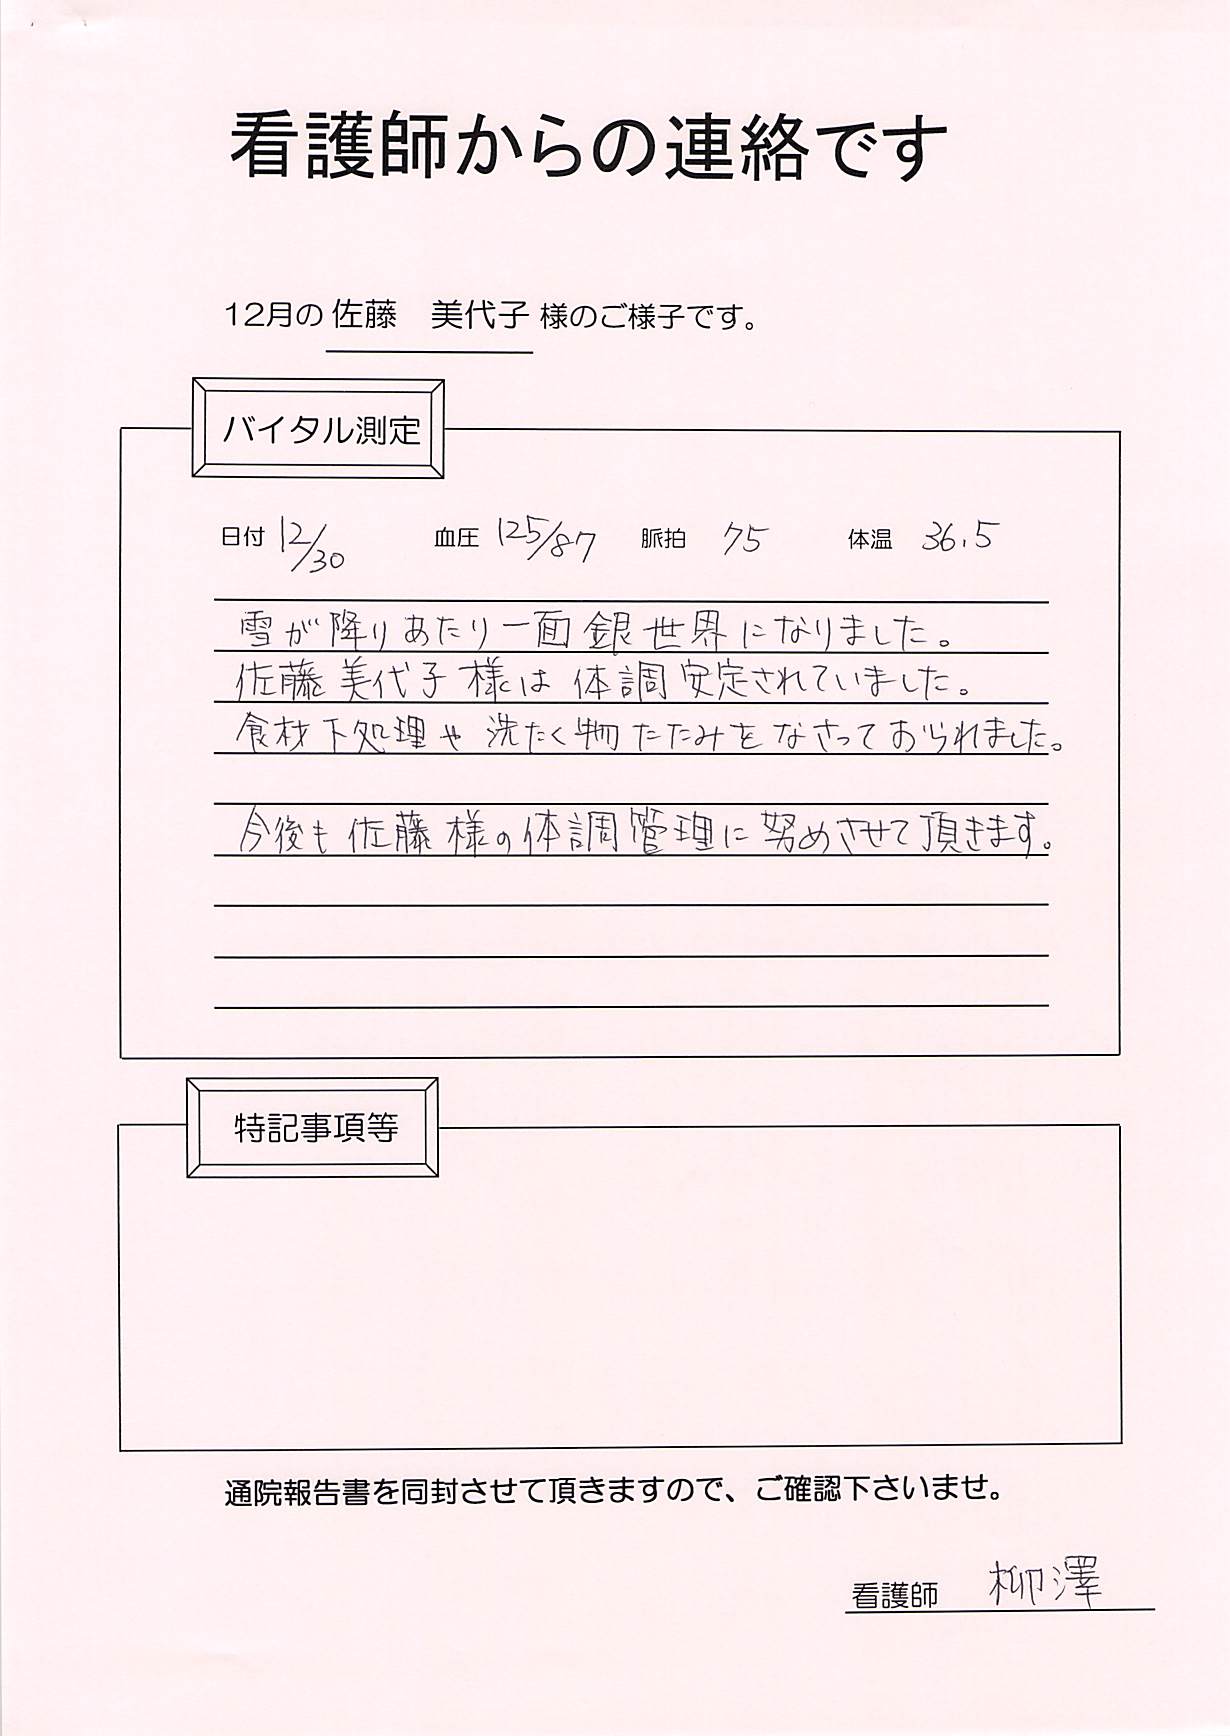 看護師からの連絡です
12月の 佐藤　美代子 様のご様子です。
バイタル測定
日付 12/30 血圧 125/87 脈拍 75 体温 36.5
雪が降りあたり一面銀世界になりました。
佐藤美代子様は体調安定されていました。
食材下処理や洗たく物たたみをなさっておられました。
今後も佐藤様の体調管理に努めさせて頂きます。
特記事項等
通院報告書を同封させて頂きますので、ご確認下さいませ。
看護師 柳澤